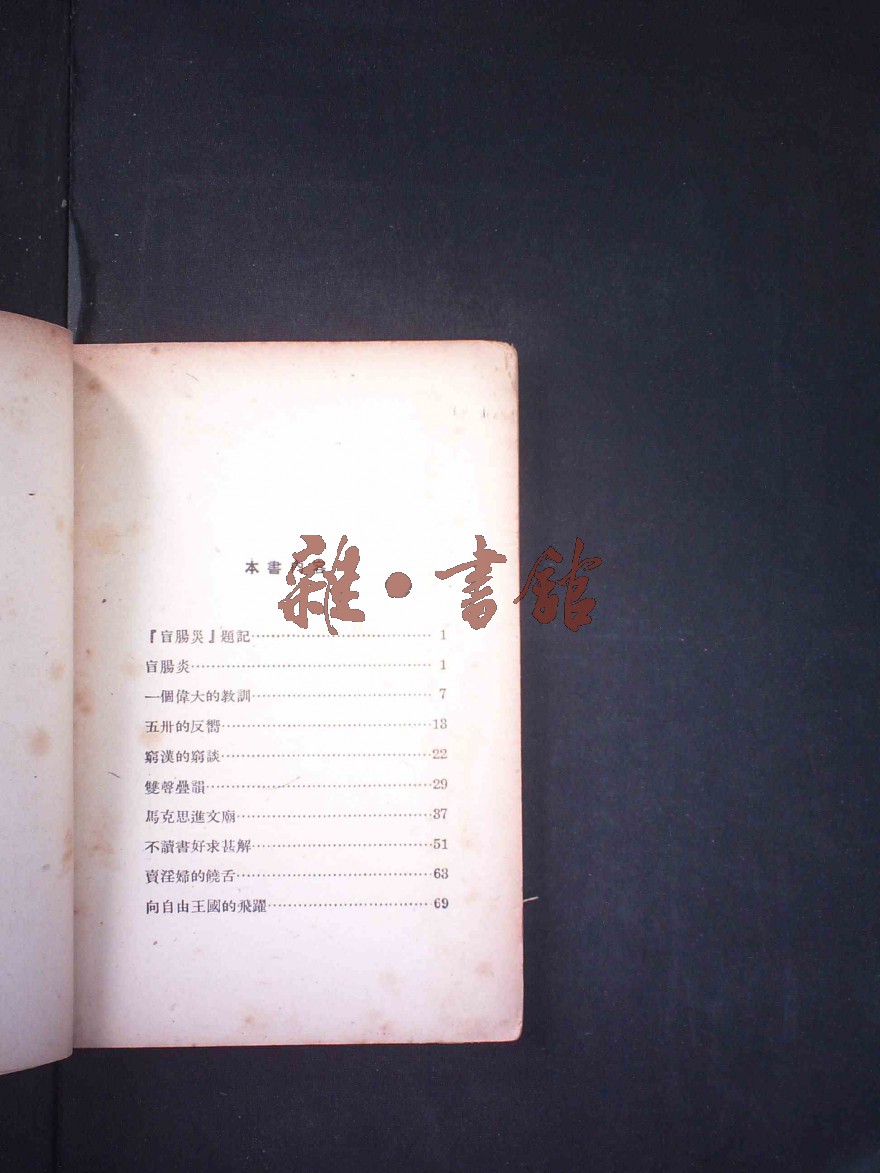 本書內容
雜·書館
『盲腸災』題記 1
盲腸炎 1
一個偉大的教訓 7
五卅的反響 13
窮漢的窮談 22
雙聲疊韻 29
馬克思進文廟 37
不讀書好求甚解 51
賣淫婦的饒舌 63
向自由王國的飛躍 69